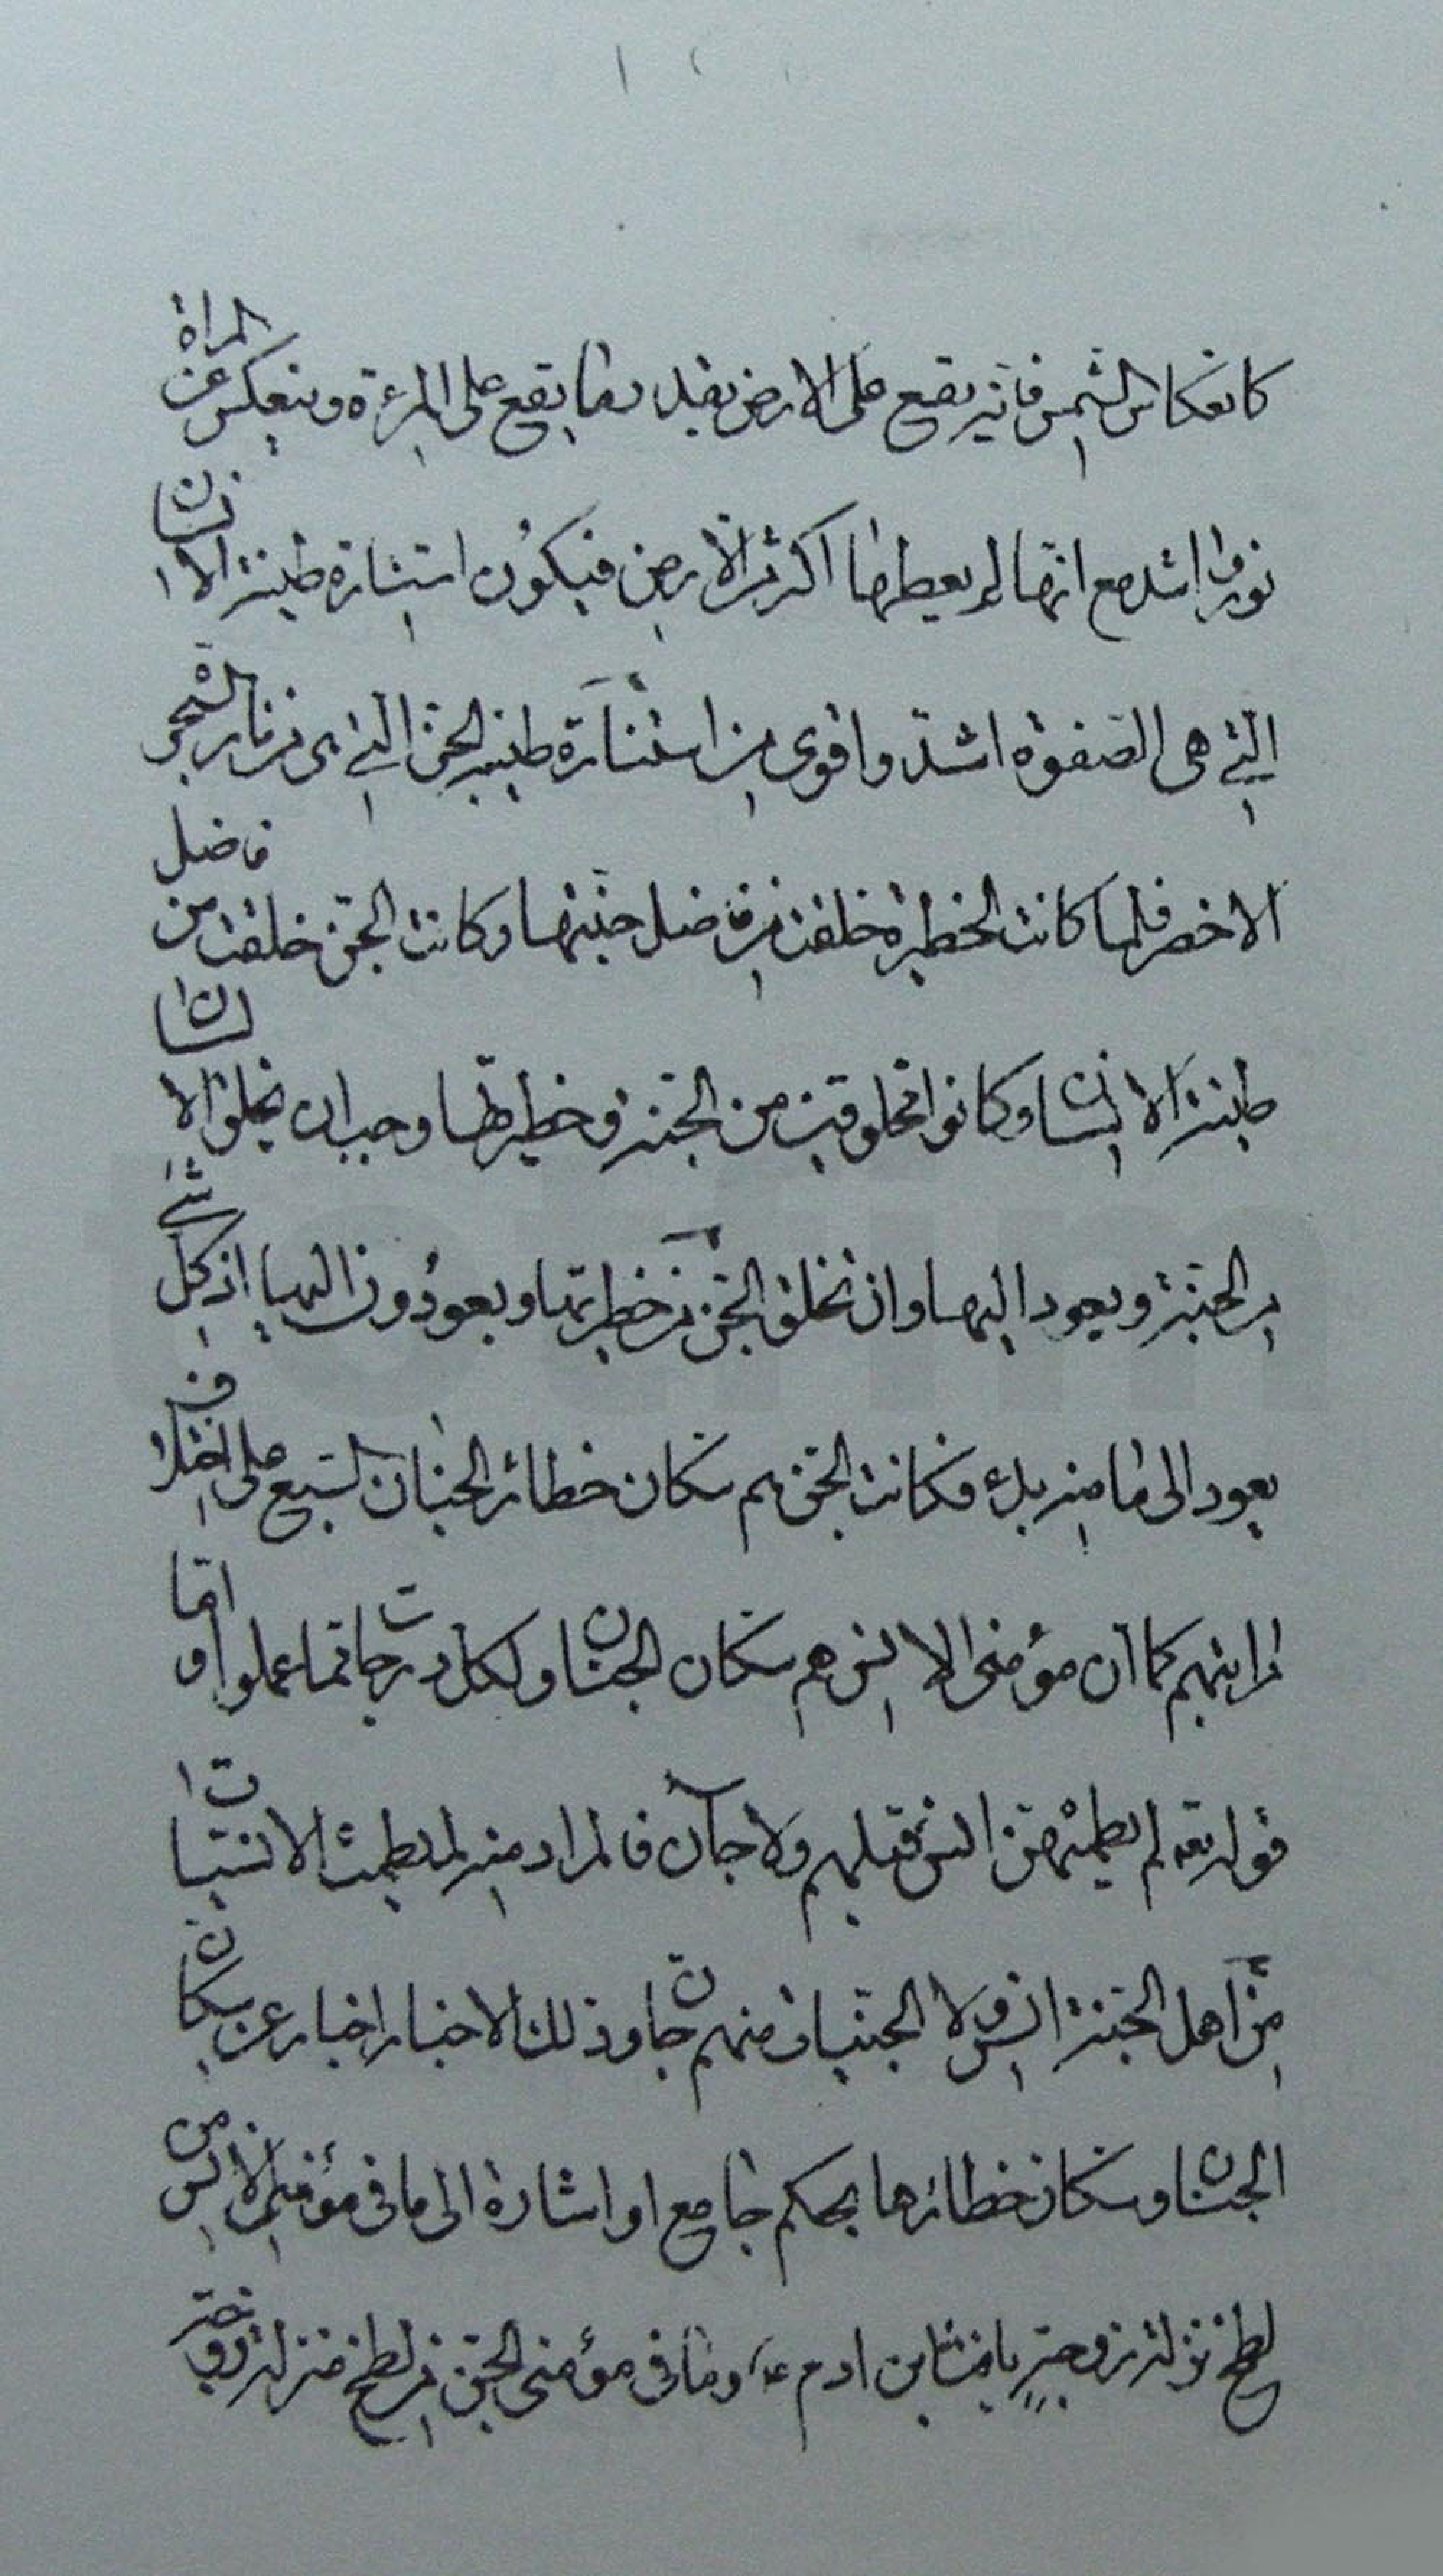 كانعكاس الشمس فانه يقع على الارض بقدر ما يقع على المرءة وينعكس عن المراة
نورها اشد مع انها لم يعطها اكثر من الارض فيكون استنارة طينة الانسان
التي هى الصفوة اشد واقوى من استنارة طينة الجن التي هى من نار الشجر
الاخضر فلما كانت الخطيرة خلقت من فاضل جنتها وكانت الجن خلقت من فاضل
طينة الانسان وكانوا مخلوقين من الجنة وخطيرتها وجب ان يخلق الانسان
من الجنة ويعود اليها وان تخلق الجن من خطيرتها ويعودون اليها اذ كل شئ
يعود الى ما منه بدء فكانت الجن هم سكان خطائر الجنان السبع على اختلاف
مراتبهم كما ان مؤمنى الانس هم سكان الجنان ولكل درجات مما عملوا واما
قوله تعه لم يطمثهن انس قبلهم ولا جآن فالمراد منه لم يطمث الانسيات
من اهل الجنة انس ولا الجنيات منهم جان وذلك الاخبار اخبار عن سكان
الجنان وسكان خطائرها بحكم جامع او اشارة الى ما فى مؤمنى الانس من
لطخ نزلة زوجة يافث ابن ادم ع وما فى مؤمنى الجن من لطخ منزلة زوجة